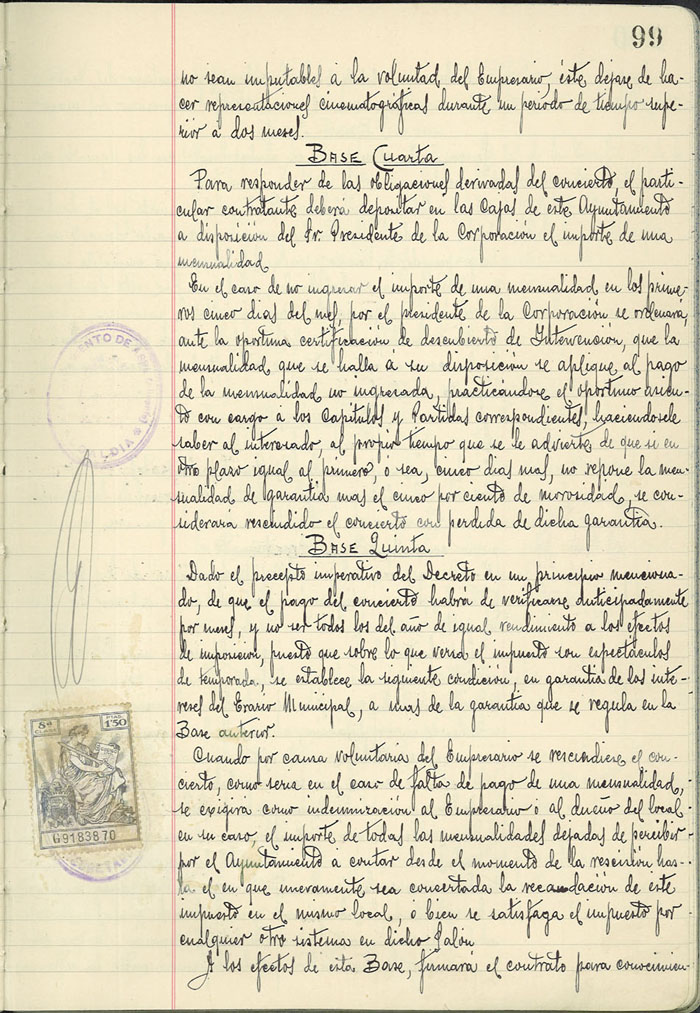 99
no sean imputables á la voluntad del Empresario, éste dejase de ha-
cer representaciones cinematográficas durante un período de tiempo supe-
rior a dos meses.
BASE Cuarta
Para responder de las obligaciones derivadas del concierto, el parti-
cular contratante deberá depositar en las Cajas de este Ayuntamiento
a disposición del Sr. Presidente de la Corporación el importe de una
mensualidad
En el caso de no ingresar el importe de una mensualidad en los prime-
ros cinco dias del mes, por el presidente de la Corporación se ordenará,
ante la oportuna certificación de descubierto de Intervención, que la
mensualidad que se halla á su disposición se aplique al pago
de la mensualidad no ingresada, practicándose el oportuno asien-
to con cargo á los Capitulos y Partidas correspondientes, haciendosele
saber al interesado, al propio tiempo que se le advierte de que si en
otro plazo igual al primero, ó sea, cinco dias mas, no repone la men-
sualidad de garantia mas el cinco por ciento de morosidad, se con-
siderará rescindido el concierto con perdida de dicha garantia.
BASE Quinta
Dado el precepto imperativo del Decreto en un principio menciona-
do, de que el pago del concierto habrá de verificarse anticipadamente
por meses, y no ser todos los del año de igual rendimiento a los efectos
de imposición, puesto que sobre lo que versa el impuesto son espectáculos
de temporada, se establece la siguiente condición, en garantia de los inte-
reses del Erario Municipal, a mas de la garantia que se regula en la
Base anterior.
Cuando por causa voluntaria del Empresario se rescindiese el con-
cierto, como seria en el caso de falta de pago de una mensualidad,
se exigirá como indemnización al Empresario ó al dueño del local
en su caso, el importe de todas las mensualidades dejadas de percibir
por el Ayuntamiento a contar desde el momento de la rescisión has-
ta el en que nuevamente sea concertada la recaudación de este
impuesto en el mismo local, ó bien se satisfaga el impuesto por
cualquier otro sistema en dicho Salón
A los efectos de esta Base, firmará el contrato para conocimien-
8ª
CLASE
PTAS.
1'50
G9183870